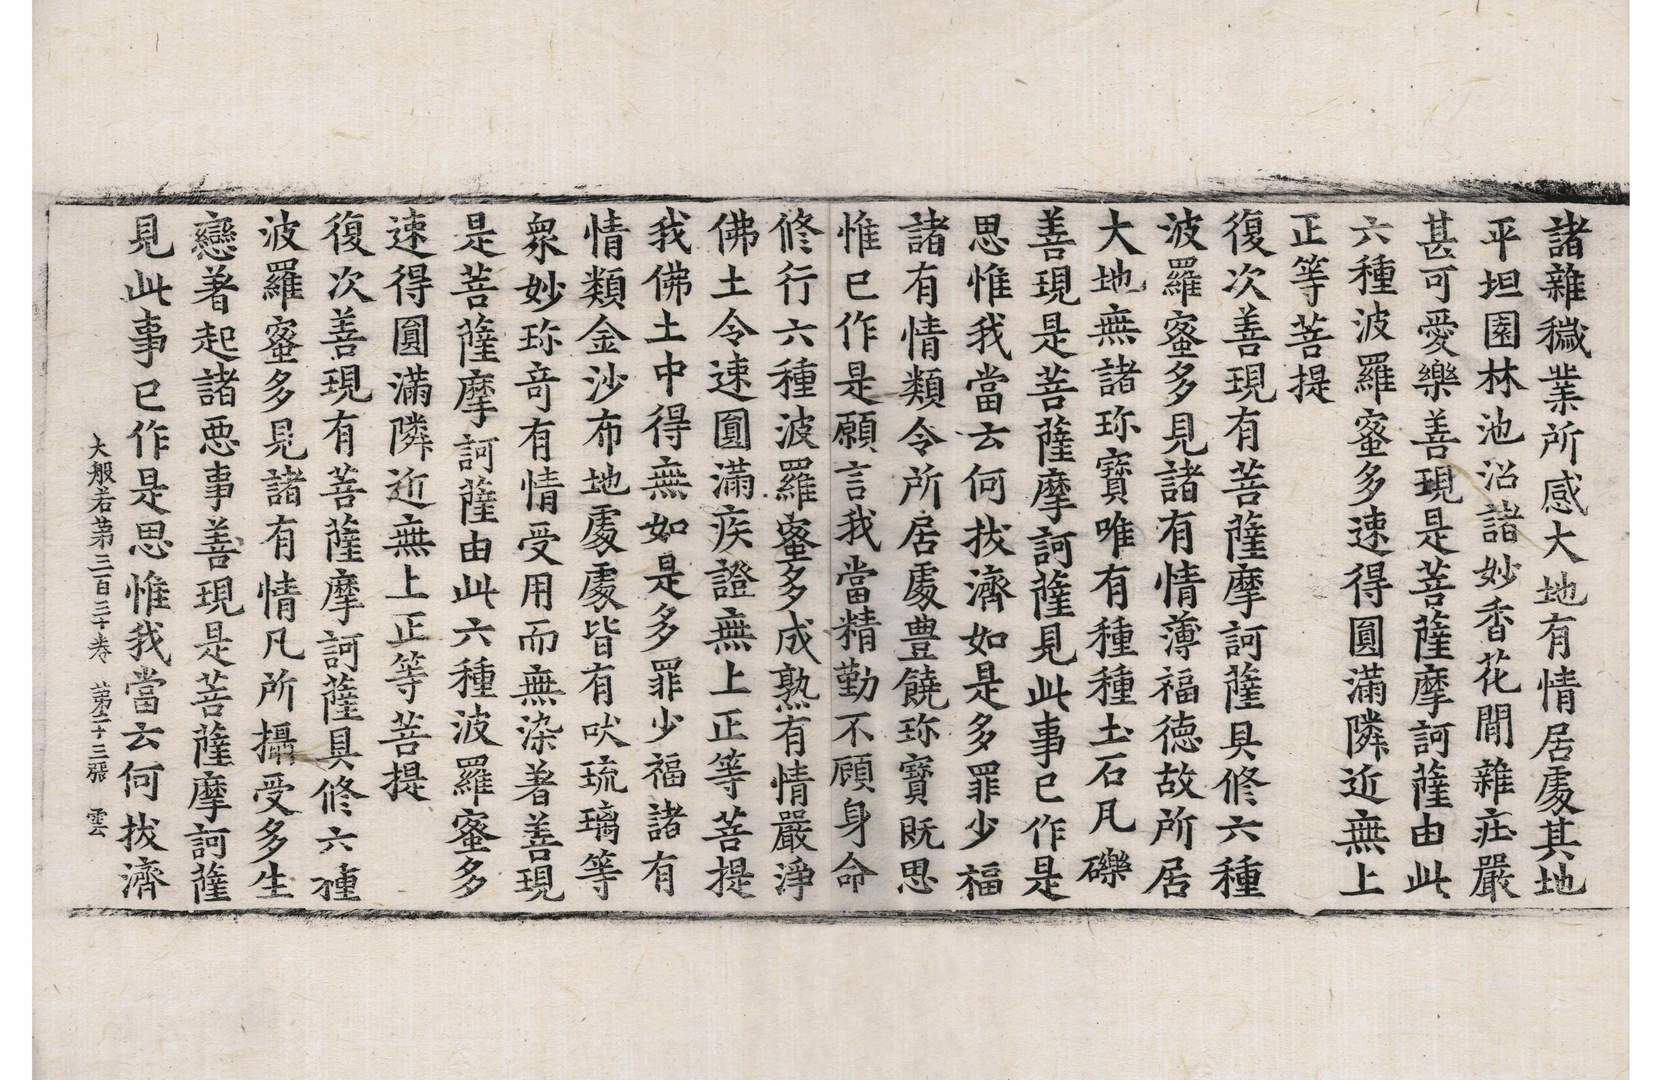 諸雜穢業所感大地有情居處其地
平坦園林池沼諸妙香花間雜莊嚴
甚可愛樂善現是菩薩摩訶薩由此
六種波羅蜜多速得圓滿隣近無上
正等菩提
復次善現有菩薩摩訶薩具修六種
波羅蜜多見諸有情薄福德故所居
大地無諸珎寶唯有種種土石凡礫
善現是菩薩摩訶薩見此事已作是
思惟我當云何拔濟如是多罪少福
諸有情類令所居處豊饒珎寶旣思
惟已作是願言我當精勤不顧身命
修行六種波羅蜜多成熟有情嚴淨
佛土令速圓滿疾證無上正等菩提
我佛土中得無如是多罪少福諸有
情類金沙布地處處皆有吠琉璃等
衆妙珎竒有情受用而無染著善現
是菩薩摩訶薩由此六種波羅蜜多
速得圓滿隣近無上正等菩提
復次善現有菩薩摩訶薩具修六種
波羅蜜多見諸有情凡所攝受多生
戀著起諸惡事善現是菩薩摩訶薩
見此事已作是思惟我當云何拔濟
大般若第三百三十卷 第二十三張 雲